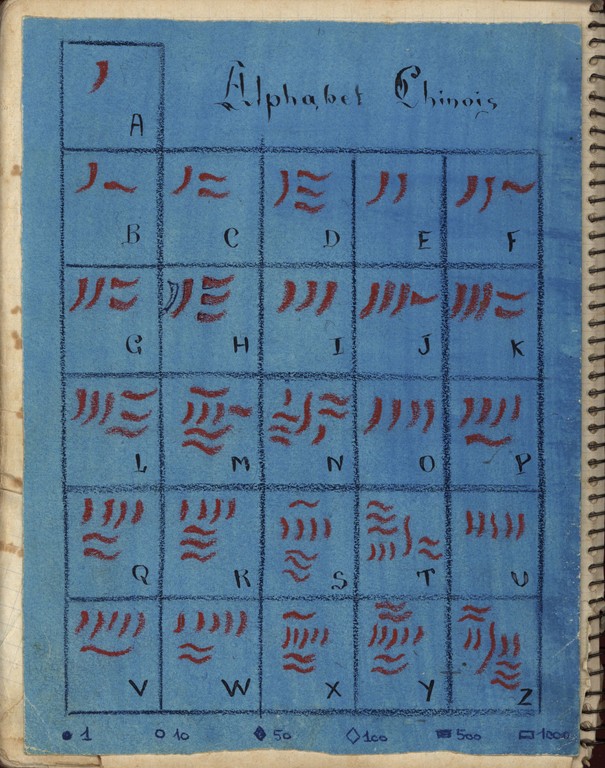 Alphabet Chinois
A
B C D E F
G H I J K
L M N O P
Q R S T U
V W X Y Z
● 1 ○ 10 ◆ 50 ◇ 100 ▬ 500 ▭ 1000